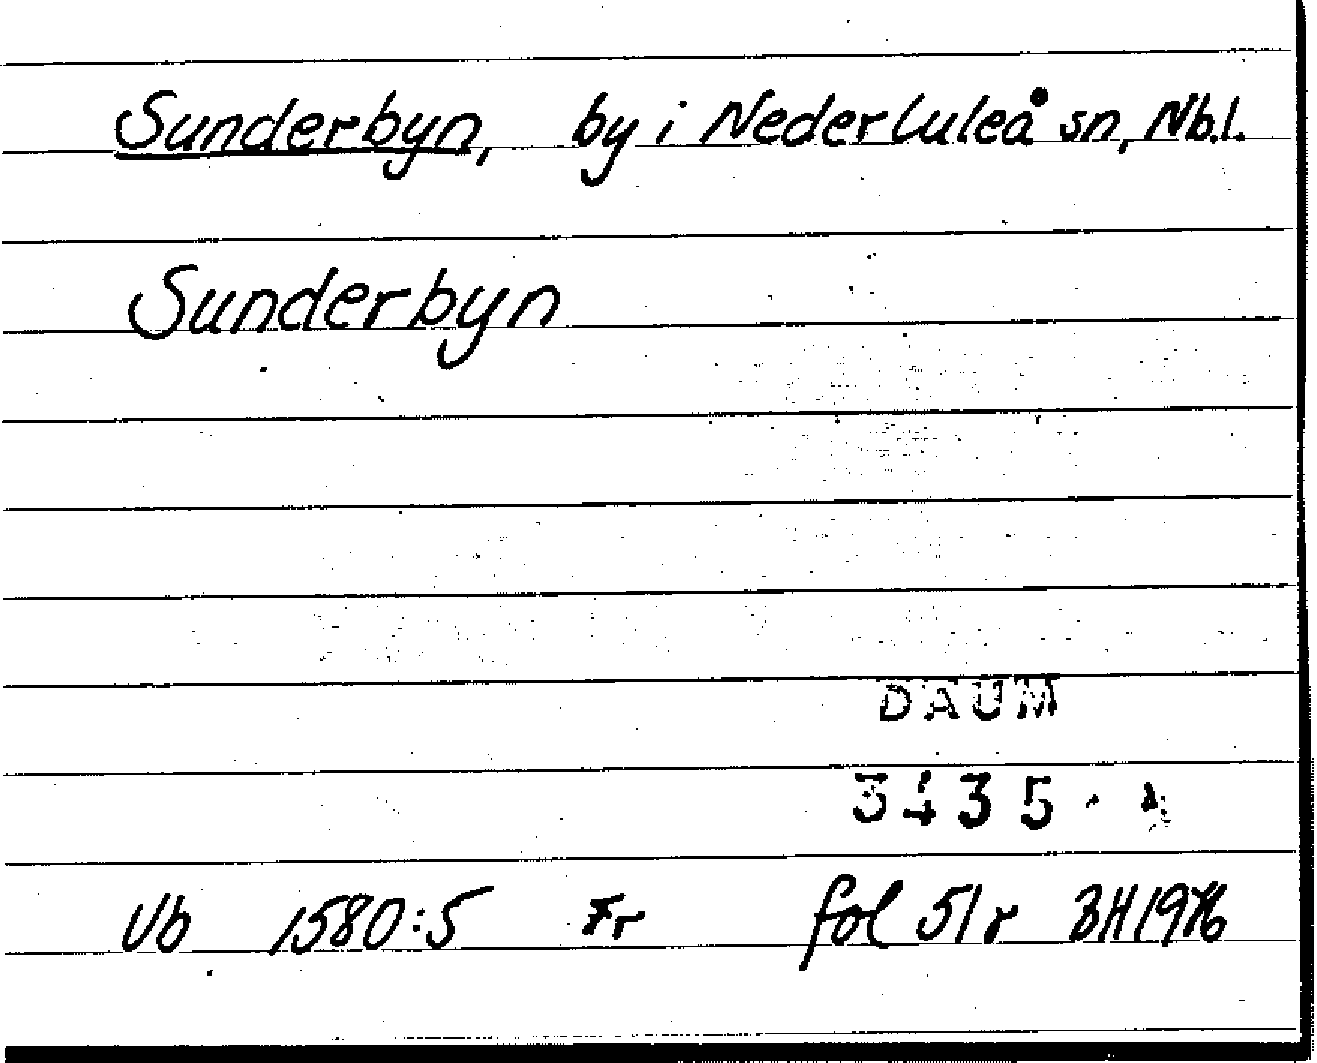 Sunderbyn, by i Nederluleå sn, Nb.l.
Sunderbyn
DAUM
3435
Vb 1580:5 Fr fol 51 r BH 1976